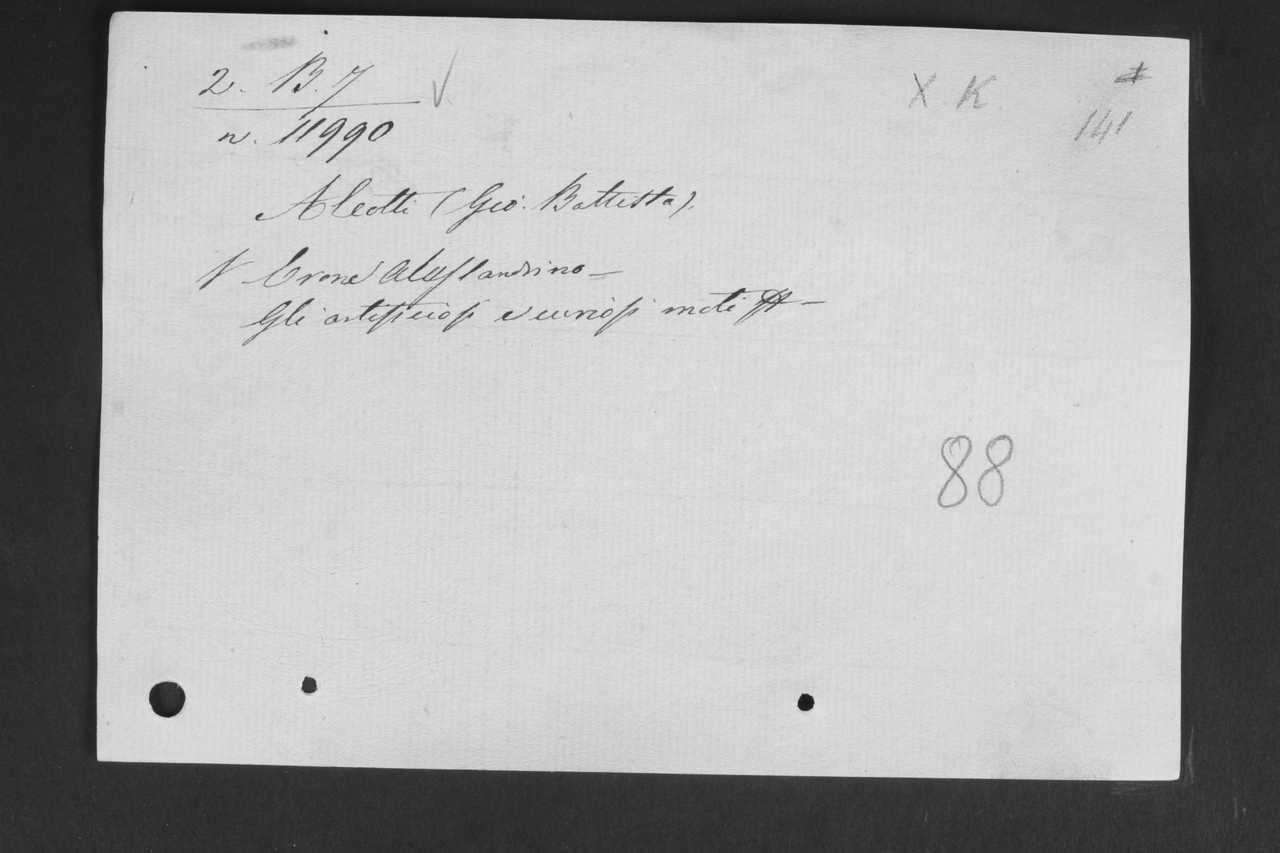 2. B. 7
n. 11990
X. K.
141
Aleotti (Gio. Battista).
V Erone Alessandrino —
Gli artificiosi e curiosi moti —
88